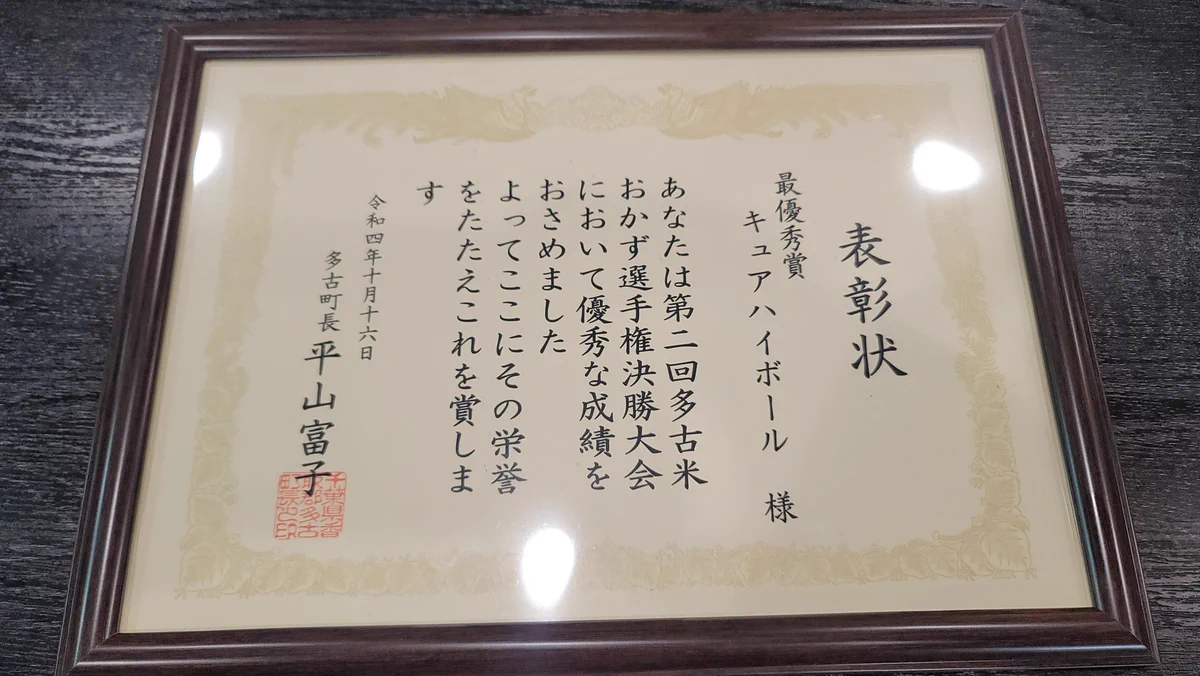 表彰状
最優秀賞
キュアハイボール 様
あなたは第二回多古米
おかず選手権決勝大会
において優秀な成績を
おさめました
よってここにその栄誉
をたたえこれを賞しま
す
令和四年十月十六日
多古町長 平山富子
千葉県香
取郡多古
町長之印